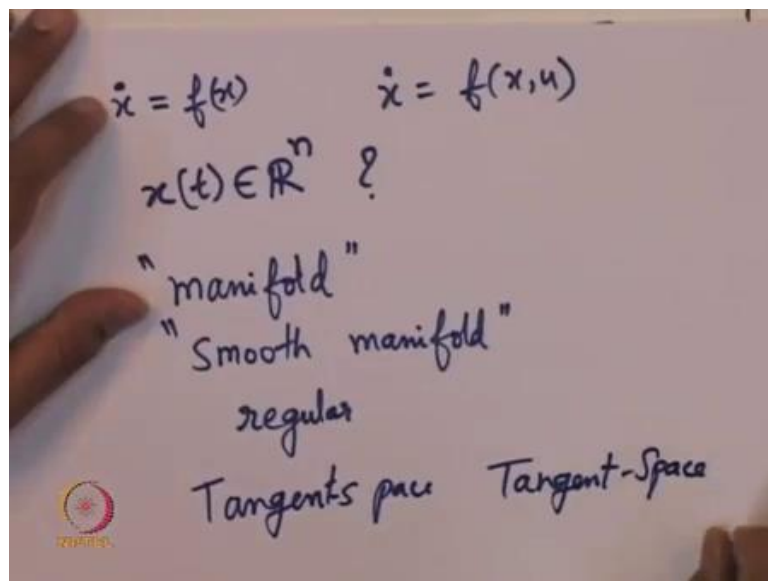 ẋ = f(x) ẋ = f(x,u)
x(t) ∈ ℝⁿ ?
"manifold"
"Smooth manifold"
regular
Tangents pace Tangent-Space
NPTEL